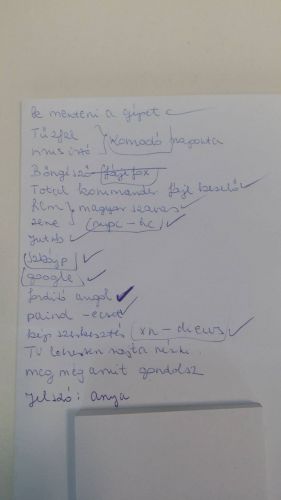 be menteni a gépet c
Tűzfal
vírus írtó } komodó naponta
Böngésző fájefox
Totál kommander fájl kezelő
film } magyar szavas
zene } (mpc-hc)
jutub
szkájp
google
fordító angol
paind - ecset
kép szerkesztés (xn-views)
TV lehessen rajta nézni
meg még amit gondolsz
jelsdó: anya